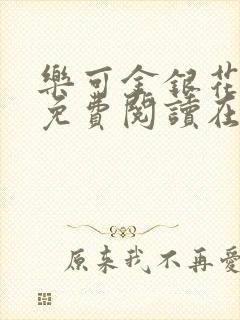 樂可金銀花
免費閱讀在
原来我不再愛